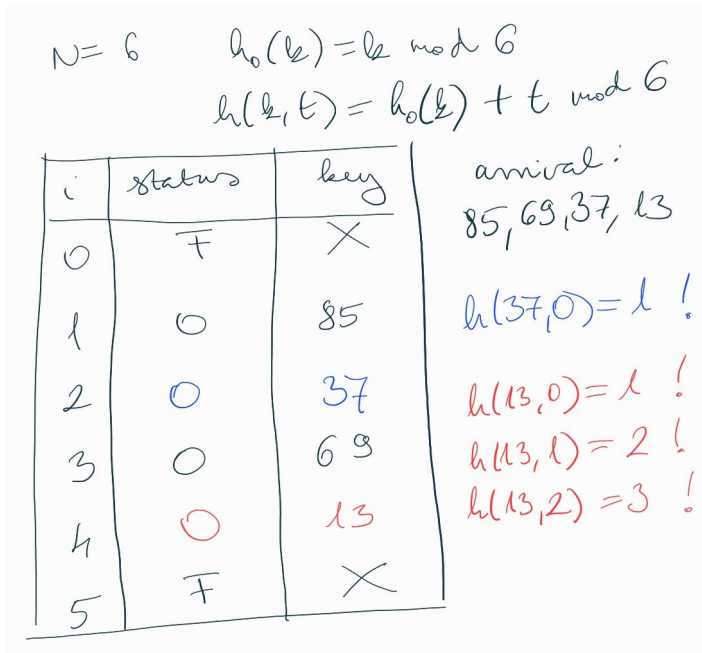 N= 6 h₀(k) = k mod 6
h(k,t) = h₀(k) + t mod 6
i status key
0 F X
1 O 85
2 O 37
3 O 69
4 O 13
5 F X
arrival:
85, 69, 37, 13
h(37,0) = 1 !
h(13,0) = 1 !
h(13,1) = 2 !
h(13,2) = 3 !